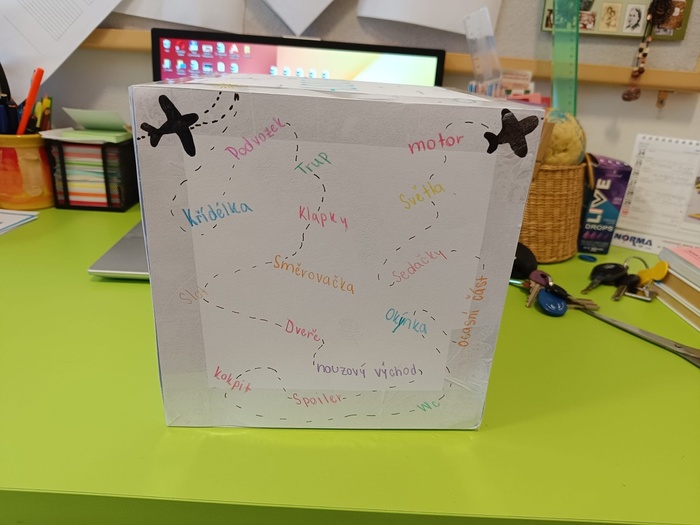 Podvozek
motor
Trup
Světla
Křidélka
Klapky
Sedačky
Směrovačka
Ocasní část
Okýnka
Dveře
nouzový východ
kokpit
Spoiler
Wc
LIVE
DROPS
NORMA